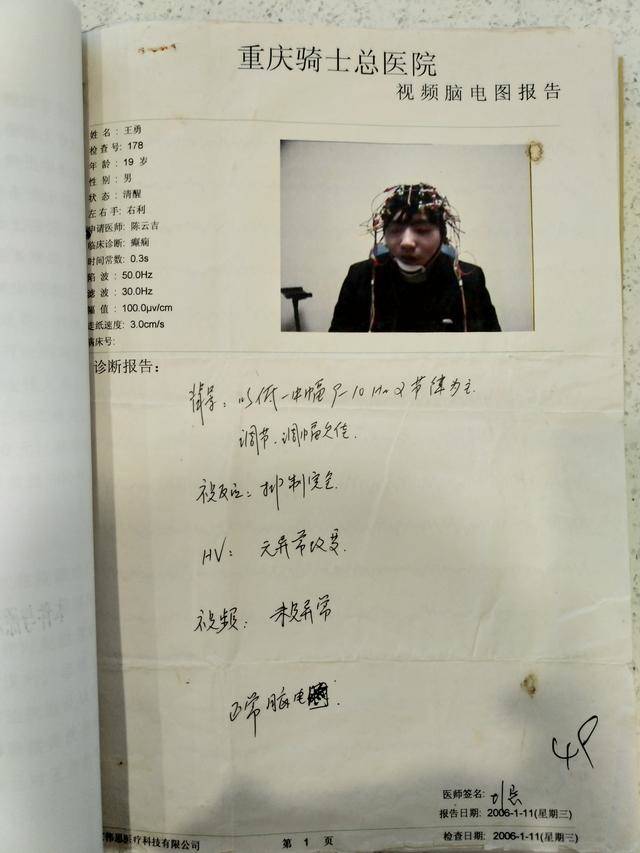 重庆骑士总医院
视频脑电图报告
姓 名: 王勇
检查号: 178
年 龄: 19 岁
性 别: 男
状 态: 清醒
左右手: 右利
申请医师: 陈云吉
临床诊断: 癫痫
时间常数: 0.3s
陷 波: 50.0Hz
滤 波: 30.0Hz
幅 值: 100.0μv/cm
走纸速度: 3.0cm/s
病床号:
诊断报告:
背景: 以低-中幅 9-10 Hz α 节律为主.
调节、调幅欠佳
视反应: 抑制完全.
HV: 无异常改变.
视频: 未见异常
正常脑电图.
医师签名:
报告日期: 2006-1-11(星期三)
医疗科技有限公司
第 1 页
检查日期: 2006-1-11(星期三)